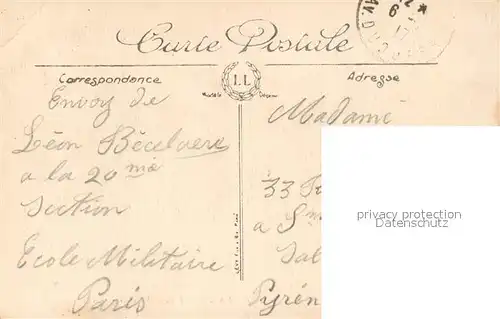 Carte Postale
Correspondance
Adresse
LL
Envoy de
Léon Bécelaere
a la 20 me
section
Ecole Militaire
Paris
Madame
33
a
Pyrén
privacy protection
Datenschutz